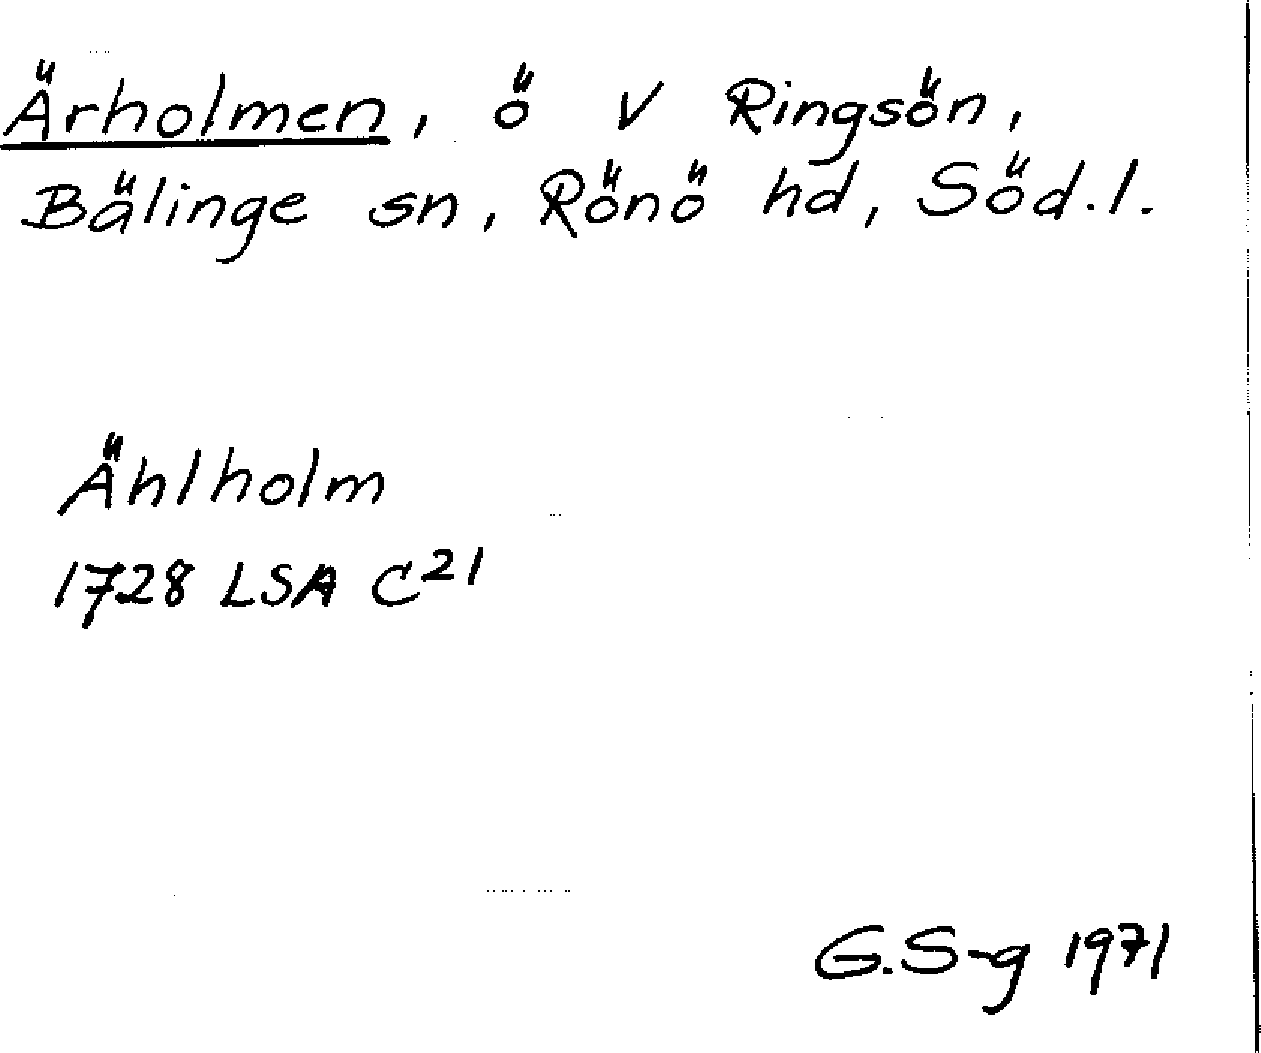 Ärholmen, ö V Ringsön,
Bälinge sn, Rönö hd, Söd.l.
Ählholm
1728 LSA C21
G.S-g 1971